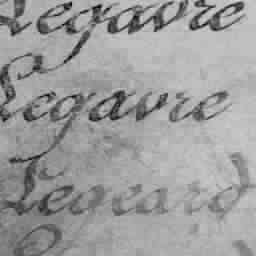 Legavre
Legavre
Legeard